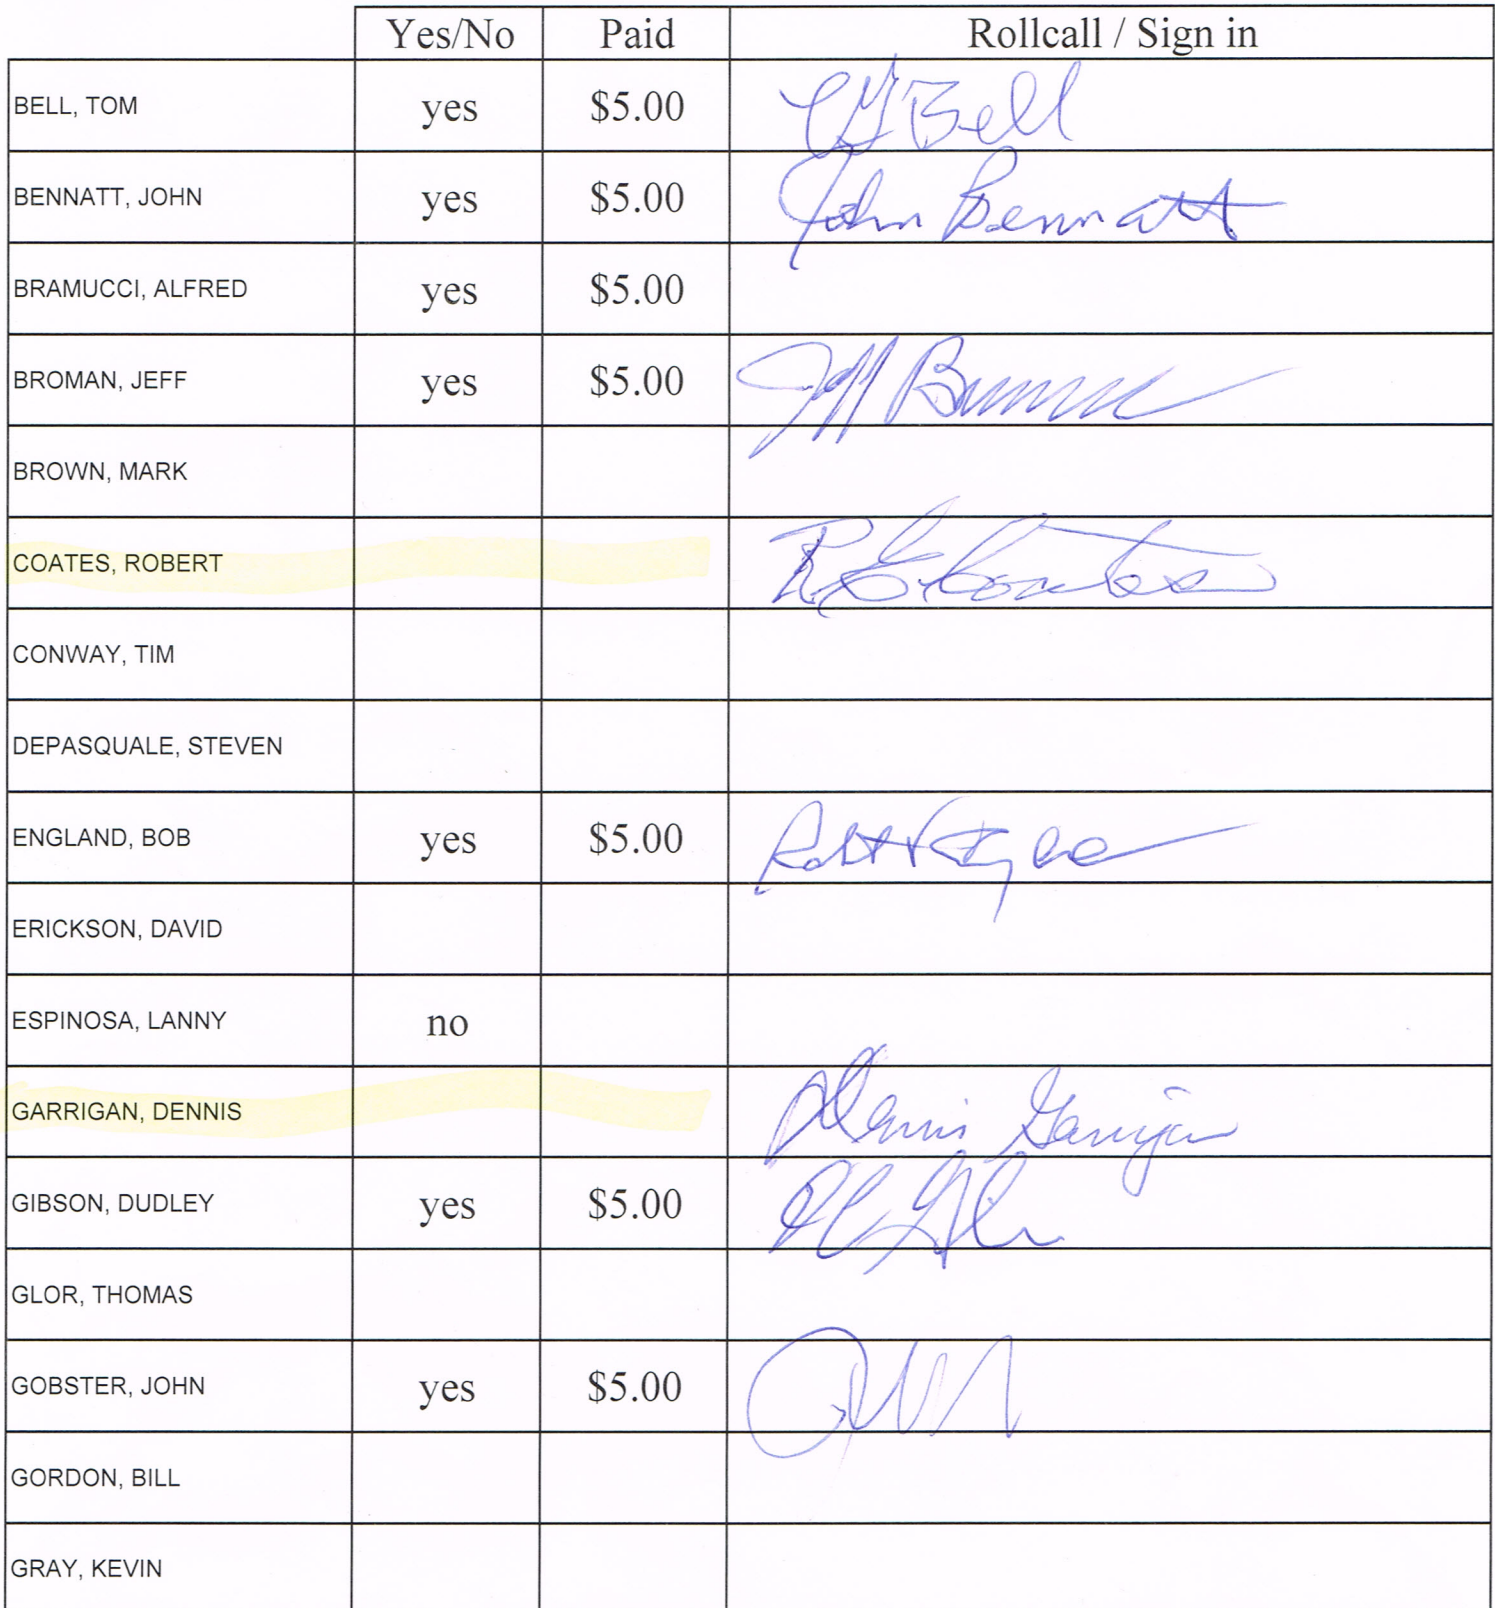 Yes/No Paid Rollcall / Sign in
BELL, TOM yes $5.00 Bell
BENNATT, JOHN yes $5.00 John Bennatt
BRAMUCCI, ALFRED yes $5.00
BROMAN, JEFF yes $5.00 Jeff
BROWN, MARK
COATES, ROBERT R G Coates
CONWAY, TIM
DEPASQUALE, STEVEN
ENGLAND, BOB yes $5.00
ERICKSON, DAVID
ESPINOSA, LANNY no
GARRIGAN, DENNIS Dennis Garrigan
GIBSON, DUDLEY yes $5.00
GLOR, THOMAS
GOBSTER, JOHN yes $5.00
GORDON, BILL
GRAY, KEVIN